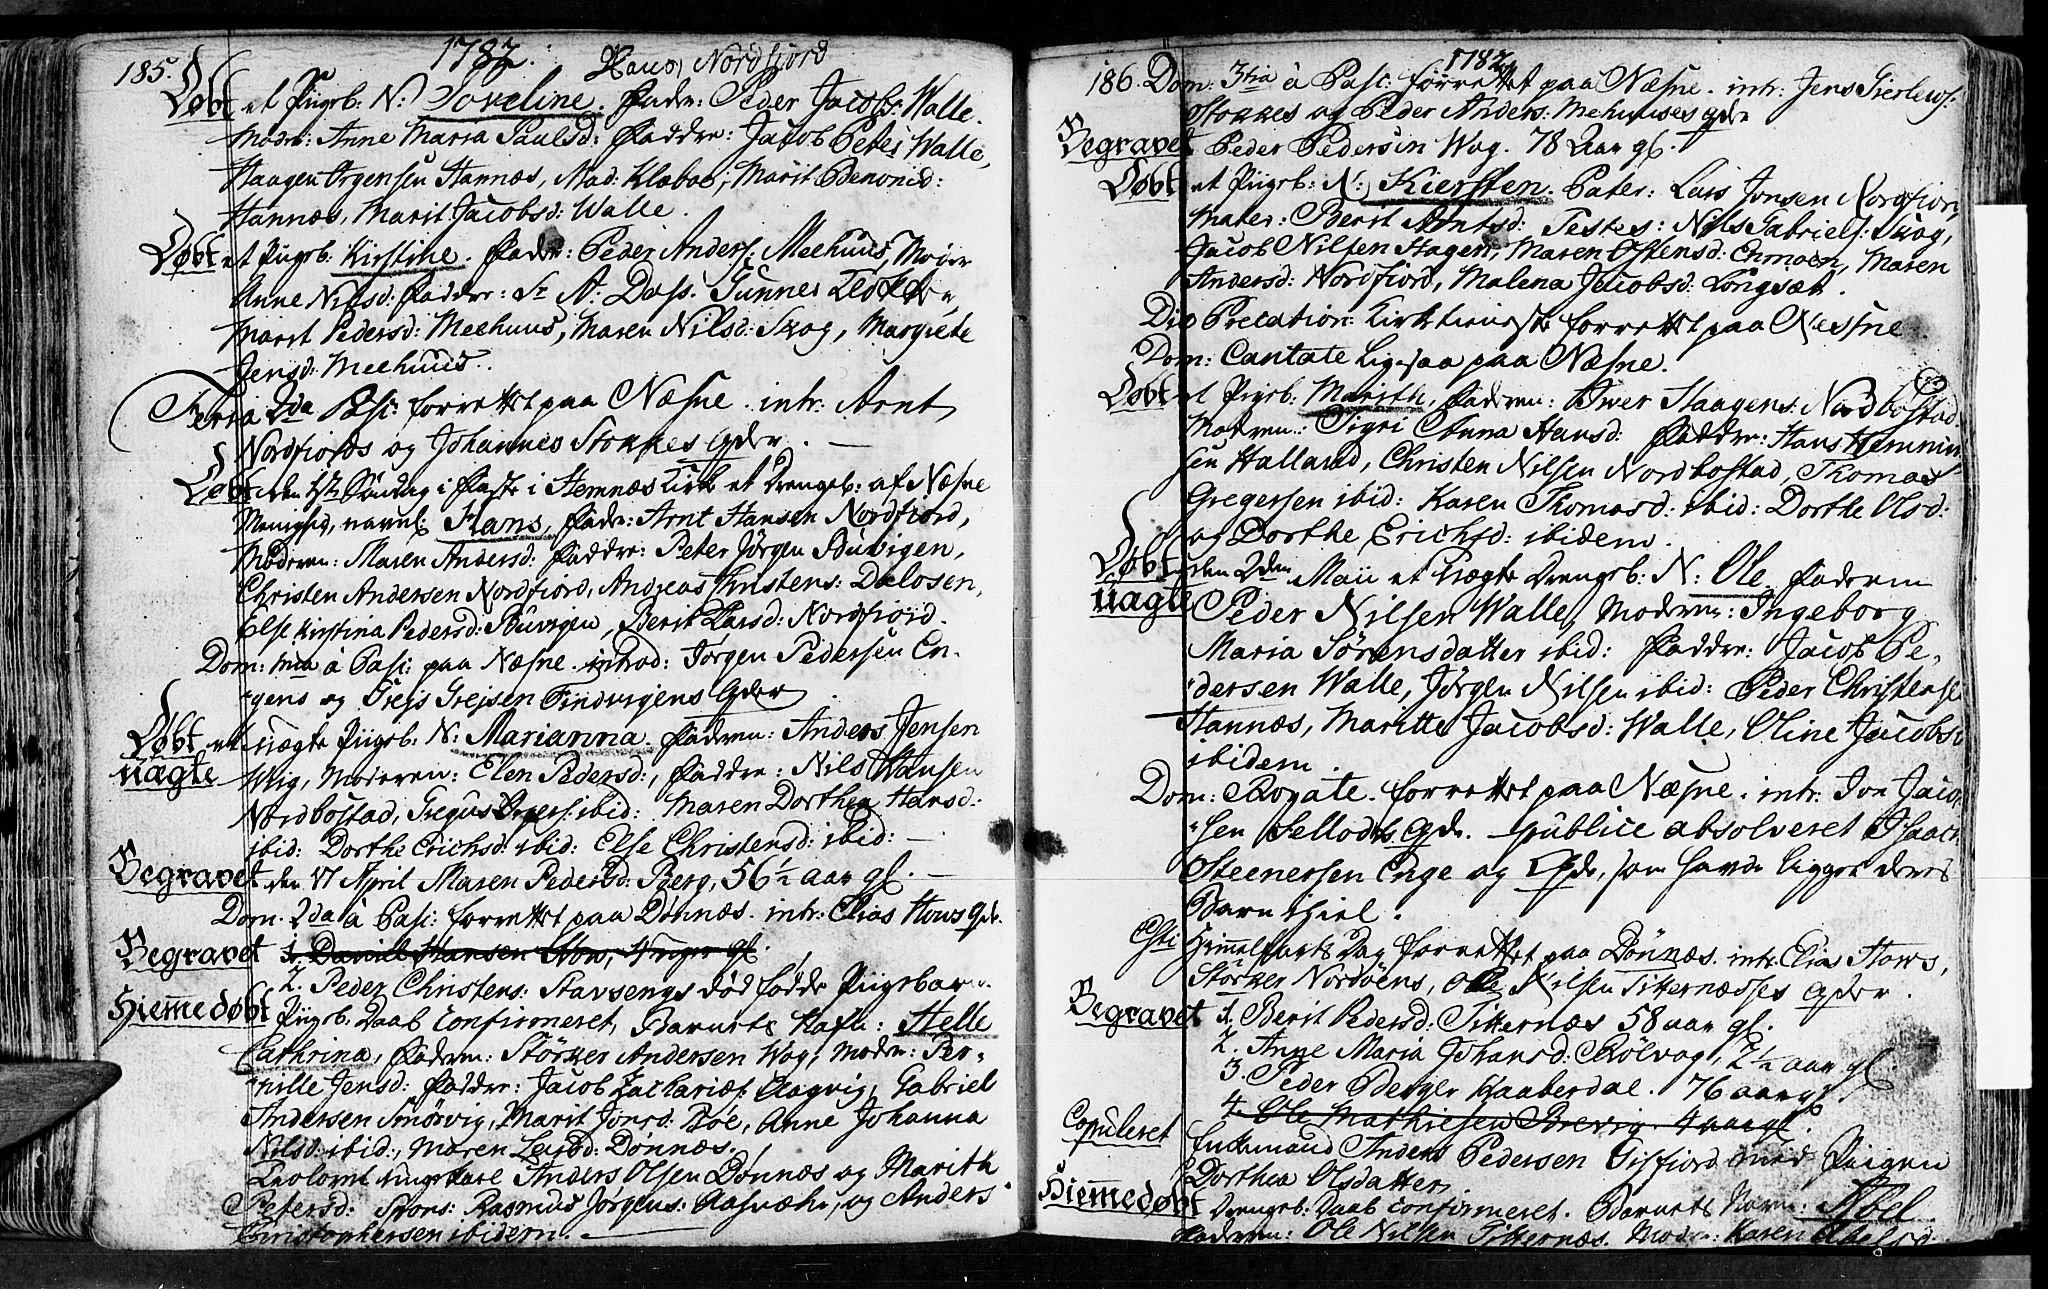 185. 1782. Hans, Nordfjord
Døbt et Piigeb: N: Faderen: Peder Jacobs: Walle.
Modr: Anne Maria Paulsd: Faddre: Jacob Peters Walle,
Haagen Hannæs, Mad: Klæboe, Marit Benonisd:
Hannæs, Marit Jacobsd: Walle.
Døbt et Piigeb: Kirstine. Fader: Peder Anders: Meehuus, Moder
Anne Nilsd: Faddre: Sr A: Dass.
Marit Pedersd: Meehuus, Maren Nilsd: Skog, Margrete
Jensd: Meehuus.
Feria 2da Pasc: forrettet paa Næsne. intr: Arnt
Nordfiords og Johannes Stokkes qdr.
Døbt den i Faste i Hemnæs Kirke et Drengeb: af Næsne
Menighed, navnl: Hans, Fader: Arnt Hansen Nordfiord,
Moderen: Maren Andersd: Faddre: Peter Jørgen Buvigen,
Christen Andersen Nordfiord, Andreas Christens: Dalosen,
Else Kirstina Pedersd: Buvigen, Berit Larsd: Nordfiord.
Dom: 1ma à Pasc: paa Næsne. introd: Jørgen Pedersen En-
gens og Greis Greisen Findvigens qdr
Døbt et uægte Piigeb: N: Marianna. Faderen: Anders Jensen
uægte Wiig, Moderen: Elen Pedersd:, Faddre: Nils Hansen
Nordbostad, ibid: Maren Dorthea Hansd:
ibid: Dorthe Erichsd: ibid: Else Christensd: ibid:
Begravet den 17 April Maren Pedersd: Berg, 56½ aar gl.
Dom. 2da à Pasc: forrettet paa Dønnæs. intr: Elias Hows qdr.
Begravet 1. Daniel Hansen gl.
2. Peder Christens: Stavsengs død fødde Piigebarn.
Hiemmedøbt Piigeb: Daab confirmeret, Barnets Nafn: Helle
Cathrina, Faderen: Størker Andersen Wog, Modr: Per-
nille Jensd: Faddre: Jacob Zachariæs: Aagvig, Gabriel
Andersen Smørvig, Marit Jonsd: Boe, Anne Johanna
Nilsd: ibid:, Maren Dønnæs.
Trolovet ungekarl Anders Olsen Dønnæs og Marith
Petersd: Spons: Rasmus Jørgens: og Anders
Christophersen ibidem.
1782
186. Dom: 3tia à Pasc: forrettet paa Næsne. intr: Jens
Stokkes og Peder Anders: Meehuuses qdr
Begravet Peder Pedersen Wog. 78 Aar gl.
Døbt et Piigeb: N: Kiersten. Pater: Lars Jonsen Nordfiord,
Mater: Berit Arntsd: Testes: Nils Gabriels: Skog,
Jacob Nilsen Hagen, Maren Ostensd: Enmoen, Maren
Andersd: Nordfiord, Malena Jacobsd: Longsæt.
Die Precation: forrettet paa Nesne
Dom: Cantate Ligesaa paa Næsne.
Døbt et Piigeb: Marith, Faderen: Iwer Haagens: Nordbostad
Moderen: Sigri Anna Hansd: Faddre: Hans Hemmin-
sen Halland, Christen Nilsen Nordbostad, Thomas
Gregersen ibid: Karen Thomasd: ibid: Dorthe Olsd:
og Dorthe Erichsd: ibidem.
Døbt den 2den Maii et uægte Drengeb: N: Ole. Faderen
uægte Peder Nilsen Walle, Moderen: Ingeborg
Maria Sørensdatter ibid: Faddre: Jacob Pe-
dersen Walle, Jørgen Nilsen ibid: Peder Christense
Hannæs, Maritte Jacobsd: Walle, Oline Jacobsd
ibidem.
Dom: Rogate. forrettet paa Næsne. intr: Jon Jacob-
sen qdr. publice absolveret Isaach
Steenersen Enge og qdr, som havde ligget deres
Barn ihiel.
Chri Himmelfarts Dag forrettet paa Dønnæs. intr: Elias Hows,
Størker Nordøens, Ole Nilsen Titternæsses qdr.
Begravet 1. Berit Pedersd: Titternæs 58 aar gl.
2. Anne Maria Johansd: Rølvog, 2½ aar gl.
3. Peder Berger Kaaberdal. 76 aar gl.
4. Ole Mathiesen Brevig 4 aar gl.
Copuleret Enkemand Anders Pedersen Gisfiord med Piigen
Dorthea Olsdatter
Hiemmedøbt Drengeb: Daab confirmeret. Barnets Navn: Abel
Faderen: Ole Nilsen Titternæs. Moder: Karen Abelsd: